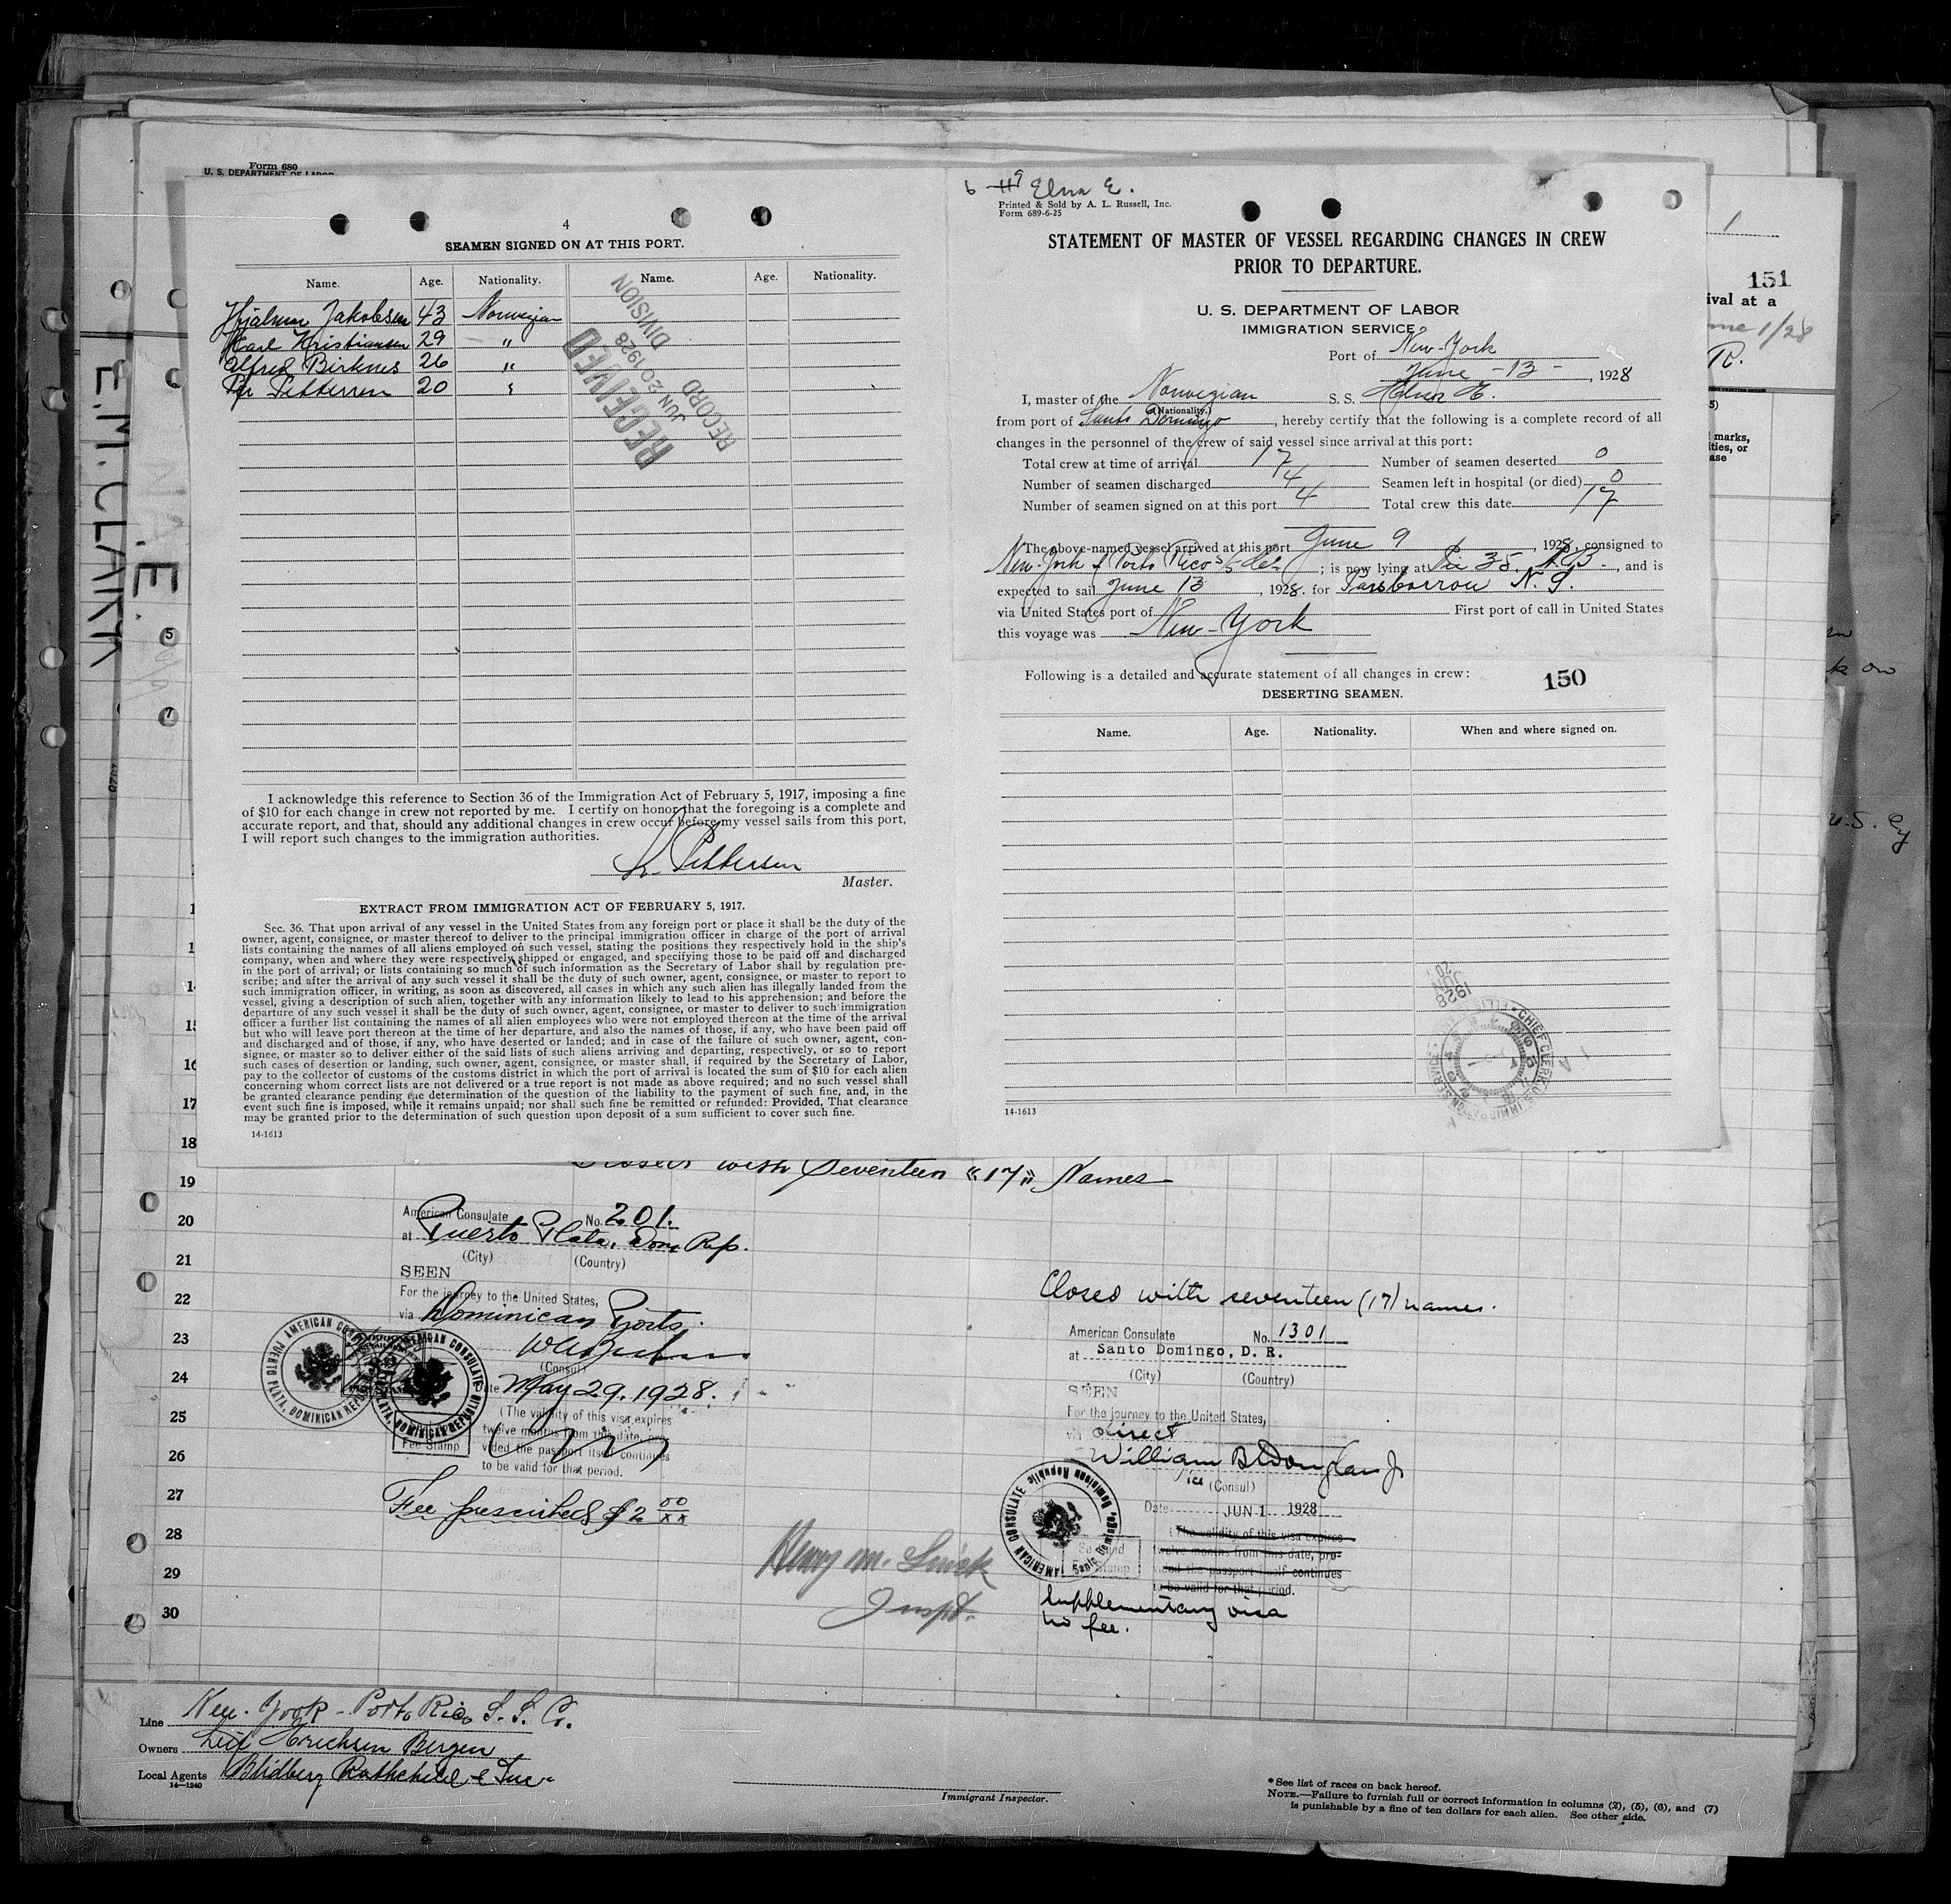 Form 680
U. S. DEPARTMENT OF LABOR
4
SEAMEN SIGNED ON AT THIS PORT.
Name. Age. Nationality. Name. Age. Nationality.
Hjalmar Jakobsen 43 Norwegian
Karl Kristiansen 29 "
Alfred Birknes 26 "
Per Pettersen 20 "
RECEIVED
JUN 20 1928
RECORD DIVISION
I acknowledge this reference to Section 36 of the Immigration Act of February 5, 1917, imposing a fine
of $10 for each change in crew not reported by me. I certify on honor that the foregoing is a complete and
accurate report, and that, should any additional changes in crew occur before my vessel sails from this port,
I will report such changes to the immigration authorities.
Pettersen
Master.
EXTRACT FROM IMMIGRATION ACT OF FEBRUARY 5, 1917.
Sec. 36. That upon arrival of any vessel in the United States from any foreign port or place it shall be the duty of the
owner, agent, consignee, or master thereof to deliver to the principal immigration officer in charge of the port of arrival
lists containing the names of all aliens employed on such vessel, stating the positions they respectively hold in the ship's
company, when and where they were respectively shipped or engaged, and specifying those to be paid off and discharged
in the port of arrival; or lists containing so much of such information as the Secretary of Labor shall by regulation pre-
scribe; and after the arrival of any such vessel it shall be the duty of such owner, agent, consignee, or master to report to
such immigration officer, in writing, as soon as discovered, all cases in which any such alien has illegally landed from the
vessel, giving a description of such alien, together with any information likely to lead to his apprehension; and before the
departure of any such vessel it shall be the duty of such owner, agent, consignee, or master to deliver to such immigration
officer a further list containing the names of all alien employees who were not employed thereon at the time of the arrival
but who will leave port thereon at the time of her departure, and also the names of those, if any, who have been paid off
and discharged and of those, if any, who have deserted or landed; and in case of the failure of such owner, agent, con-
signee, or master so to deliver either of the said lists of such aliens arriving and departing, respectively, or so to report
such cases of desertion or landing, such owner, agent, consignee, or master shall, if required by the Secretary of Labor,
pay to the collector of customs of the customs district in which the port of arrival is located the sum of $10 for each alien
concerning whom correct lists are not delivered or a true report is not made as above required; and no such vessel shall
be granted clearance pending the determination of the question of the liability to the payment of such fine, and, in the
event such fine is imposed, while it remains unpaid; nor shall such fine be remitted or refunded: Provided, That clearance
may be granted prior to the determination of such question upon deposit of a sum sufficient to cover such fine.
14-1613
Elna E.
Printed & Sold by A. L. Russell, Inc.
Form 689-6-25
STATEMENT OF MASTER OF VESSEL REGARDING CHANGES IN CREW
PRIOR TO DEPARTURE.
U. S. DEPARTMENT OF LABOR
IMMIGRATION SERVICE
Port of New-York
June -13- , 1928
I, master of the Norwegian S. S. Elna E.
(Nationality.)
from port of Santo Domingo, hereby certify that the following is a complete record of all
changes in the personnel of the crew of said vessel since arrival at this port:
Total crew at time of arrival 17 Number of seamen deserted 0
Number of seamen discharged 4 Seamen left in hospital (or died) 0
Number of seamen signed on at this port 4 Total crew this date 17
The above-named vessel arrived at this port June 9, 1928, consigned to
New-York & Porto Rico ; is now lying at Pier 35. , and is
expected to sail June 13, 1928. for Parsborrow N. S.
via United States port of First port of call in United States
this voyage was New-York
Following is a detailed and accurate statement of all changes in crew:
150
DESERTING SEAMEN.
Name. Age. Nationality. When and where signed on.
14-1613
1928
JUN
20
CHIEF CLERK
1
151
ival at a
June 1/28
R.
5)
marks,
ities, or
ase
k on
U.S. Cy
E.M. CLARK
NA E.
5
7
14
15
16
17
18
19
20
21
22
23
24
25
26
27
28
29
30
with Seventeen "17" Names
American Consulate No. 201.
at Puerto Plata, Dom. Rep.
(City) (Country)
SEEN
For the journey to the United States,
via Dominican Ports.
(Consul)
Date May 29. 1928.
(The validity of this visa expires
twelve months from this date, pro-
vided the passport itself continues
to be valid for that period.
Fee Stamp
AMERICAN CONSULATE PUERTO PLATA, DOMINICAN REPUBLIC
Fee prescribed $2 00/xx
Closed with seventeen (17) names.
American Consulate No. 1301
at Santo Domingo, D. R.
(City) (Country)
SEEN
For the journey to the United States,
via direct
William B Douglas Jr
Vice (Consul)
Date JUN 1 1928
(The validity of this visa expires
twelve months from this date, pro-
vided the passport itself continues
to be valid for that period.
AMERICAN CONSULATE Santo Domingo, Dominican Republic
Supplementary visa
no fee.
Henry M.
Inspt.
Line New-York - Porto Rico S. S. Co.
Owners Leif Erichsen Bergen
Local Agents Blidberg Rothchild & Inc.
14-1240
Immigrant Inspector.
* See list of races on back hereof.
NOTE.—Failure to furnish full or correct information in columns (2), (5), (6), and (7)
is punishable by a fine of ten dollars for each alien. See other side.